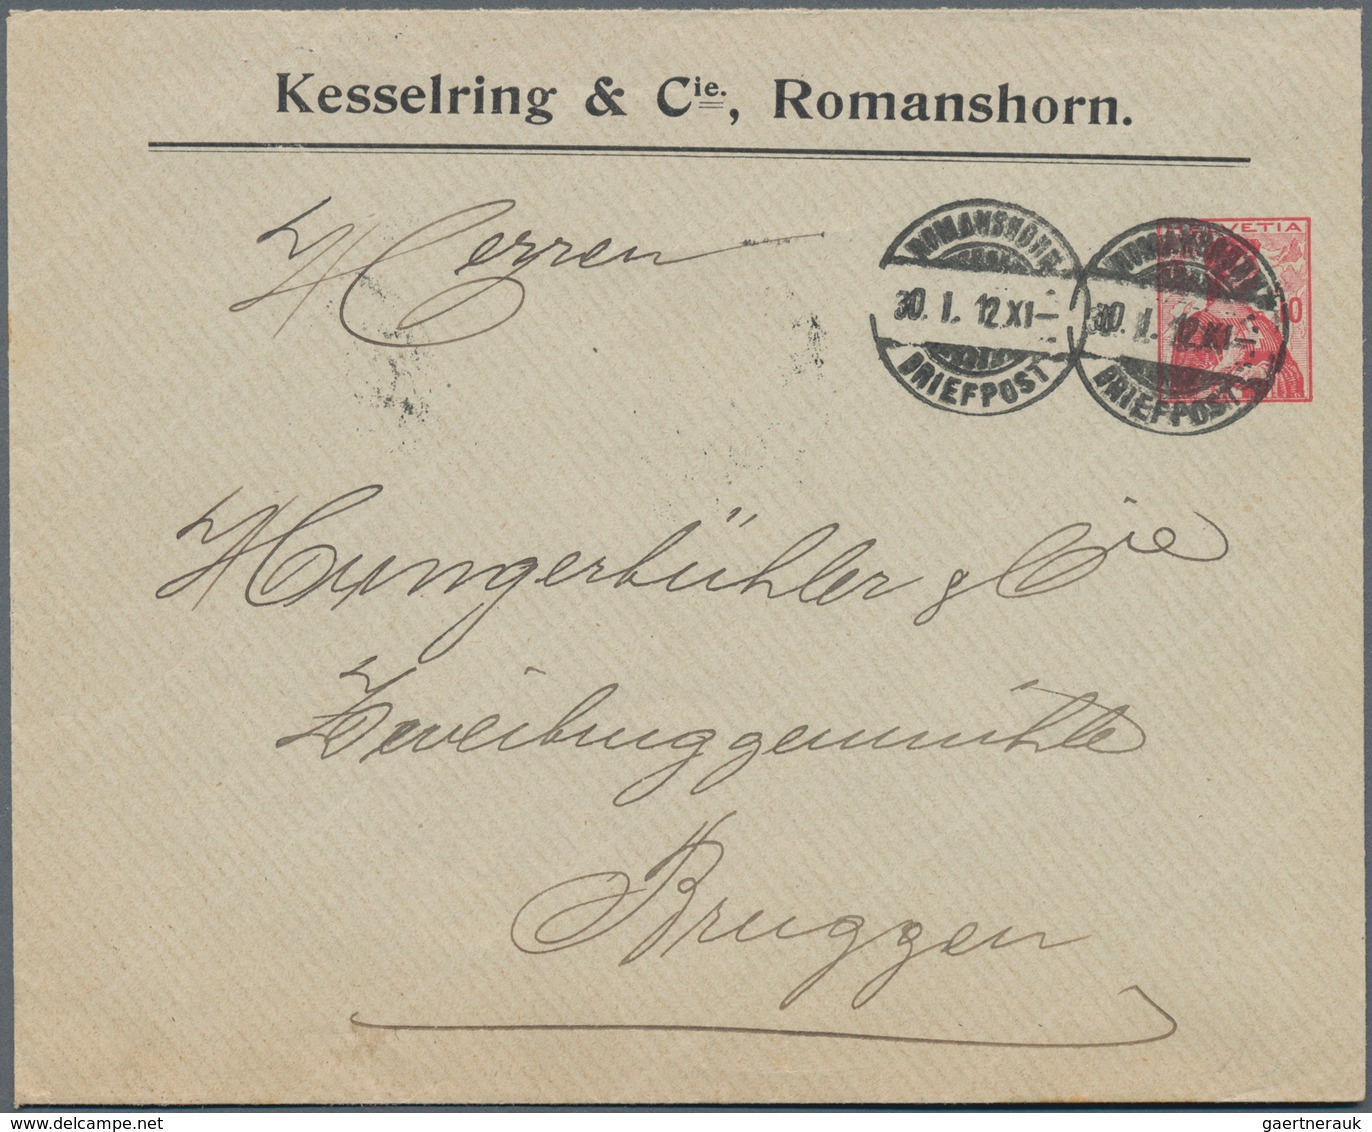 Kesselring & Cie., Romanshorn.
Herren
ROMANSHORN
30. I. 12.XI—
BRIEFPOST
ROMANSHORN
30. I. 12.XI—
BRIEFPOST
VETIA
0
Hungerbühler & Cie
Zweibruggenmühle
Bruggen
gaertnerauk